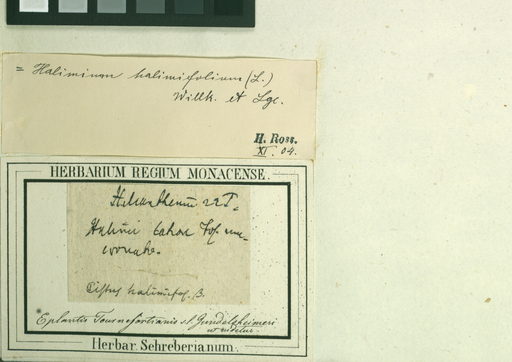 = Halimium halimifolium (L.)
Willk. et Lge.
H. Ross.
XI. 04.
HERBARIUM REGIUM MONACENSE.
Helianthemū 22 T.
Halimi
Cistus halimifol. β.
E plantis Tournefortianis et Gundelsheimeri
ut videtur.
Herbar. Schreberianum.